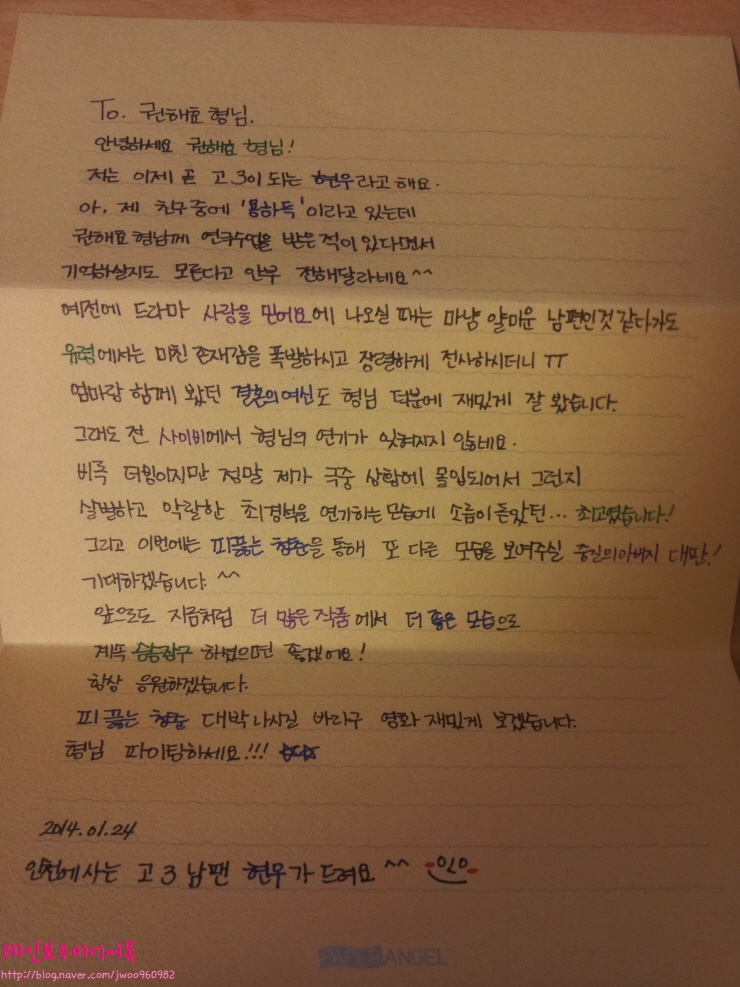 To. 권해효 형님.
안녕하세요 권해효 형님!
저는 이제 곧 고3이 되는 현우라고 해요.
아, 제 친구중에 '용하득'이라고 있는데
권해효형님께 연극수업을 받은적이 있다면서
기억하실지도 모른다고 안부 전해달라네요^^
예전에 드라마 사랑을 믿어요에 나오실 때는 마냥 얄미운 남편인것 같다가도
유령에서는 미친 존재감을 폭발하시고 장렬하게 전사하시더니 ㅠㅠ
엄마랑 함께 봤던 결혼의여신도 형님 덕분에 재밌게 잘 봤습니다.
그래도 전 사이비에서 형님의 연기가 잊혀지지 않네요.
비록 더빙이지만 정말 제가 극중 상황에 몰입되어서 그런지
살벌하고 악랄한 최경석을 연기하는모습에 소름이 돋았던... 최고였습니다!
그리고 이번에는 피끓는 청춘을 통해 또 다른 모습을 보여주실 중길의아버지 대판!
기대하겠습니다. ^^
앞으로도 지금처럼 더 많은 작품에서 더 좋은 모습으로
계속 승승장구 하셨으면 좋겠어요!
항상 응원하겠습니다.
피 끓는 청춘 대박나시길 바라구 영화 재밌게 보겠습니다.
형님 파이팅하세요!!! ☆☆
2014.01.24
인천에사는 고3 남팬 현우가 드려요 ^^
PAPERANGEL
레인보우미디어톡
http://blog.naver.com/jwoo960982